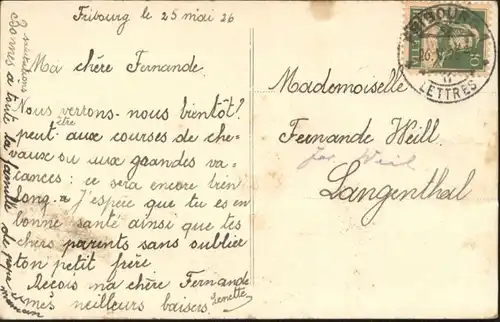 Fribourg le 25 mai 26
Ma chère Fernande.
Nous verrons-nous bientôt?
peut être aux courses de che-
vaux ou aux grandes va-
cances: ce sera encore bien
long. J'espère que tu es en
bonne santé ainsi que tes
chers parents sans oublier
ton petit frère.
Reçois ma chère Fernande
mes meilleurs baisers.
Lenette
Bonnes salutations
à toute la famille de papa et
maman
Mademoiselle
Fernande Weill
Weil
Langenthal
FRIBOURG
LETTRES
10